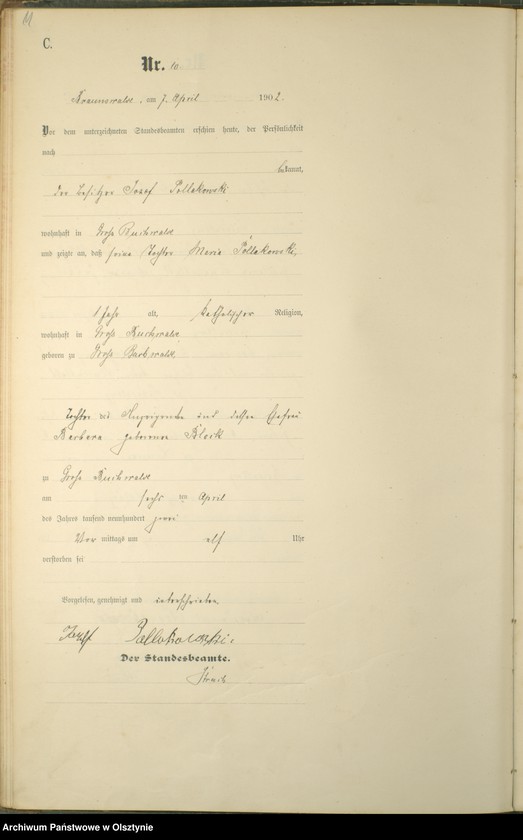 11
C.
Nr. 10
Braunswalde, am 7. April 1902.
Vor dem unterzeichneten Standesbeamten erschien heute, der Persönlichkeit
nach
bekannt,
der Besitzer Josef Pollakowski
wohnhaft in Groß Buchwalde
und zeigte an, daß seine Tochter Maria Pollakowski,
1 Jahr alt, katholischer Religion,
wohnhaft in Groß Buchwalde
geboren zu Groß Buchwalde,
Tochter des Anzeigenden und dessen Ehefrau
Barbara geborenen
zu Groß Buchwalde
am sechs ten April
des Jahres tausend neunhundert zwei
Vor mittags um elf Uhr
verstorben sei
Vorgelesen, genehmigt und unterschrieben
Josef Pollakowski
Der Standesbeamte.
Archiwum Państwowe w Olsztynie